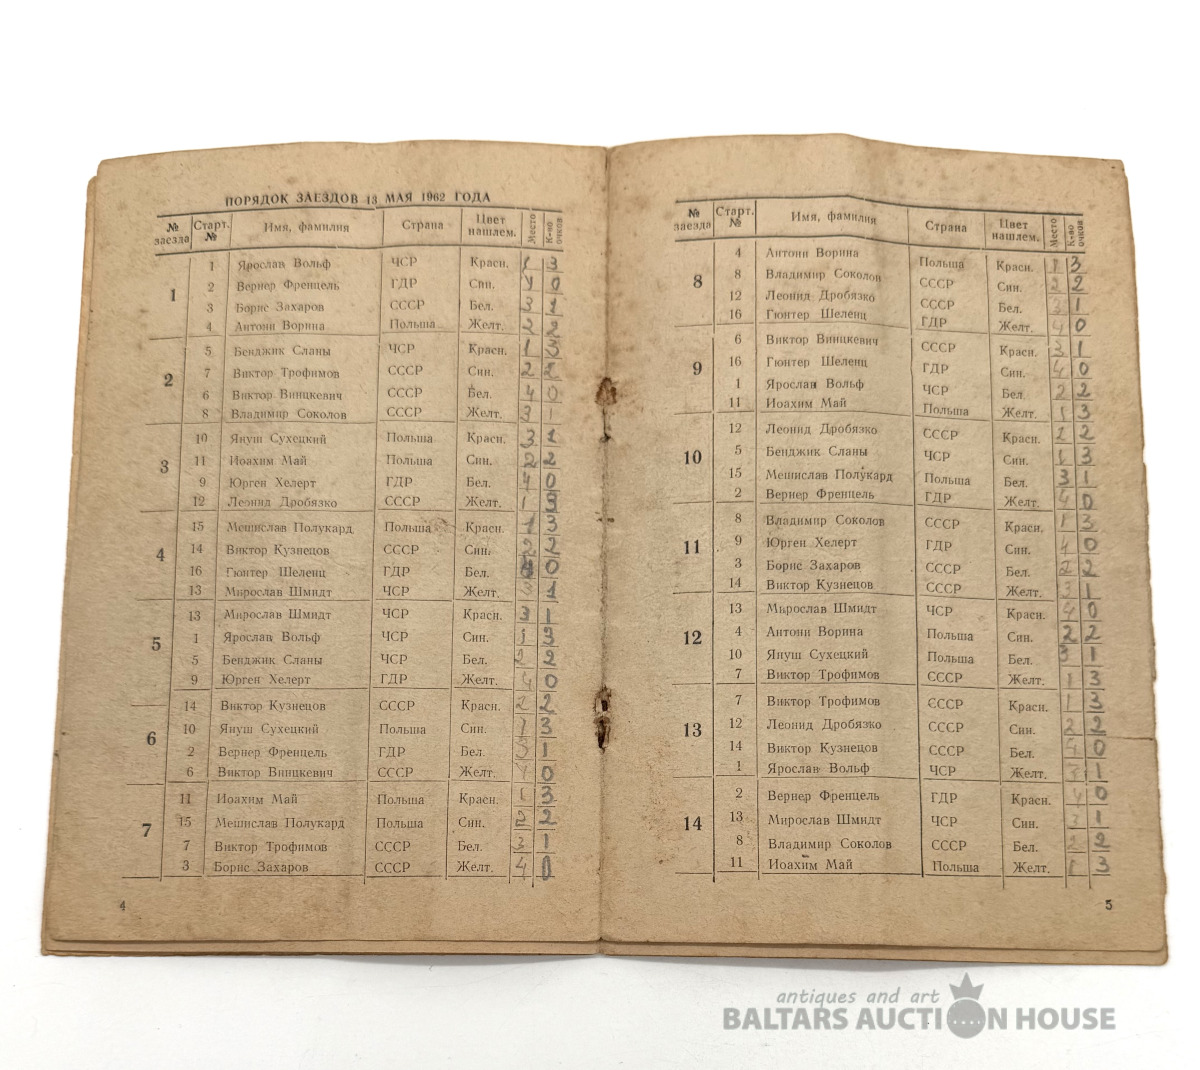 ПОРЯДОК ЗАЕЗДОВ 13 МАЯ 1962 ГОДА
№ заезда Старт. № Имя, фамилия Страна Цвет нашлем. Место К-во очков
1
1 Ярослав Вольф ЧСР Красн. 1 3
2 Вернер Френцель ГДР Син. 4 0
3 Борис Захаров СССР Бел. 3 1
4 Антони Ворина Польша Желт. 2 2
2
5 Бенджик Сланы ЧСР Красн. 1 3
7 Виктор Трофимов СССР Син. 2 2
6 Виктор Винцкевич СССР Бел. 4 0
8 Владимир Соколов СССР Желт. 3 1
3
10 Януш Сухецкий Польша Красн. 3 1
11 Иоахим Май Польша Син. 2 2
9 Юрген Хелерт ГДР Бел. 4 0
12 Леонид Дробязко СССР Желт. 1 3
4
15 Мешислав Полукард Польша Красн. 1 3
14 Виктор Кузнецов СССР Син. 2 2
16 Гюнтер Шеленц ГДР Бел. 0
13 Мирослав Шмидт ЧСР Желт. 3 1
5
13 Мирослав Шмидт ЧСР Красн. 3 1
1 Ярослав Вольф ЧСР Син. 1 3
5 Бенджик Сланы ЧСР Бел. 2 2
9 Юрген Хелерт ГДР Желт. 4 0
6
14 Виктор Кузнецов СССР Красн. 2 2
10 Януш Сухецкий Польша Син. 1 3
2 Вернер Френцель ГДР Бел. 3 1
6 Виктор Винцкевич СССР Желт. 4 0
7
11 Иоахим Май Польша Красн. 1 3
15 Мешислав Полукард Польша Син. 2 2
7 Виктор Трофимов СССР Бел. 3 1
3 Борис Захаров СССР Желт. 4 0
4
№ заезда Старт. № Имя, фамилия Страна Цвет нашлем. Место К-во очков
8
4 Антони Ворина Польша Красн. 1 3
8 Владимир Соколов СССР Син. 2 2
12 Леонид Дробязко СССР Бел. 3 1
16 Гюнтер Шеленц ГДР Желт. 4 0
9
6 Виктор Винцкевич СССР Красн. 3 1
16 Гюнтер Шеленц ГДР Син. 4 0
1 Ярослав Вольф ЧСР Бел. 2 2
11 Иоахим Май Польша Желт. 1 3
10
12 Леонид Дробязко СССР Красн. 2 2
5 Бенджик Сланы ЧСР Син. 1 3
15 Мешислав Полукард Польша Бел. 3 1
2 Вернер Френцель ГДР Желт. 4 0
11
8 Владимир Соколов СССР Красн. 1 3
9 Юрген Хелерт ГДР Син. 4 0
3 Борис Захаров СССР Бел. 2 2
14 Виктор Кузнецов СССР Желт. 3 1
12
13 Мирослав Шмидт ЧСР Красн. 4 0
4 Антони Ворина Польша Син. 2 2
10 Януш Сухецкий Польша Бел. 3 1
7 Виктор Трофимов СССР Желт. 1 3
13
7 Виктор Трофимов СССР Красн. 1 3
12 Леонид Дробязко СССР Син. 2 2
14 Виктор Кузнецов СССР Бел. 4 0
1 Ярослав Вольф ЧСР Желт. 3 1
14
2 Вернер Френцель ГДР Красн. 4 0
13 Мирослав Шмидт ЧСР Син. 3 1
8 Владимир Соколов СССР Бел. 2 2
11 Иоахим Май Польша Желт. 1 3
5
antiques and art
BALTARS AUCTION HOUSE